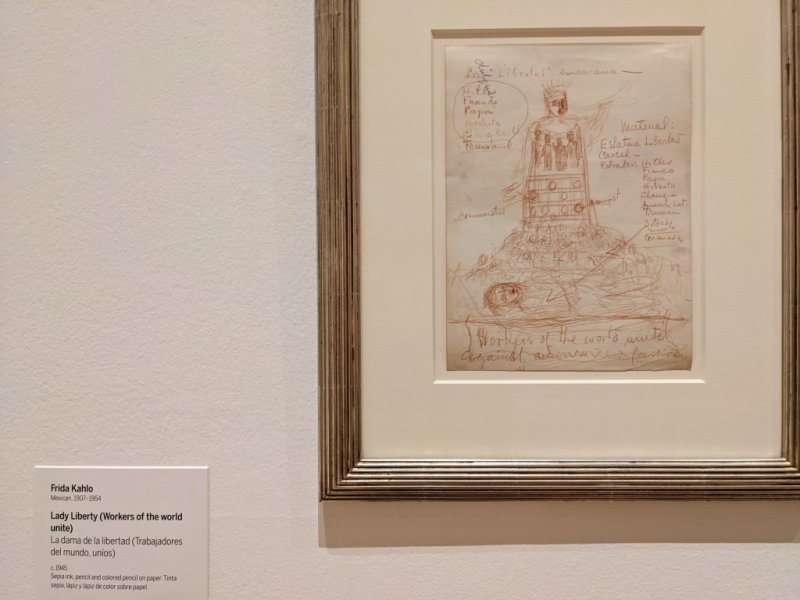 La "Libertad" Americana —
Hitler
Franco
Hirohito
Truman
Material:
Estatua Libertad
Carcel —
Retratos Hitler
Franco
Hirohito
Chang —
Truman
comunistas
Workers of the world unite
against american fascism
Frida Kahlo
Mexican, 1907–1954
Lady Liberty (Workers of the world
unite)
La dama de la libertad (Trabajadores
del mundo, uníos)
c. 1945
Sepia ink, pencil and colored pencil on paper. Tinta
sepia, lápiz y lápiz de color sobre papel.